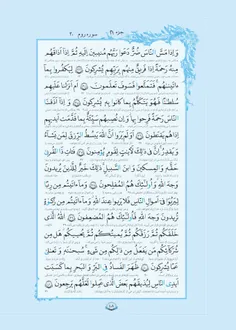 جزء ٢١ سوره روم ٣٠
وَإِذَا مَسَّ النَّاسَ ضُرٌّ دَعَوْا رَبَّهُم مُّنِيبِينَ إِلَيْهِ ثُمَّ إِذَا أَذَاقَهُم
مِّنْهُ رَحْمَةً إِذَا فَرِيقٌ مِّنْهُم بِرَبِّهِمْ يُشْرِكُونَ ٣٣ لِيَكْفُرُوا بِمَا
ءَاتَيْنَٰهُمْ فَتَمَتَّعُوا فَسَوْفَ تَعْلَمُونَ ٣٤ أَمْ أَنزَلْنَا عَلَيْهِمْ
سُلْطَٰنًا فَهُوَ يَتَكَلَّمُ بِمَا كَانُوا بِهِ يُشْرِكُونَ ٣٥ وَإِذَا أَذَقْنَا
النَّاسَ رَحْمَةً فَرِحُوا بِهَا وَإِن تُصِبْهُمْ سَيِّئَةٌ بِمَا قَدَّمَتْ أَيْدِيهِمْ
إِذَا هُمْ يَقْنَطُونَ ٣٦ أَوَلَمْ يَرَوْا أَنَّ اللَّهَ يَبْسُطُ الرِّزْقَ لِمَن يَشَاءُ
وَيَقْدِرُ إِنَّ فِي ذَٰلِكَ لَءَايَٰتٍ لِّقَوْمٍ يُؤْمِنُونَ ٣٧ فَـَٔاتِ ذَا الْقُرْبَىٰ
حَقَّهُ وَالْمِسْكِينَ وَابْنَ السَّبِيلِ ذَٰلِكَ خَيْرٌ لِّلَّذِينَ يُرِيدُونَ
وَجْهَ اللَّهِ وَأُولَٰئِكَ هُمُ الْمُفْلِحُونَ ٣٨ وَمَا ءَاتَيْتُم مِّن رِّبًا
لِّيَرْبُوَا فِي أَمْوَٰلِ النَّاسِ فَلَا يَرْبُوا عِندَ اللَّهِ وَمَا ءَاتَيْتُم مِّن زَكَوٰةٍ
تُرِيدُونَ وَجْهَ اللَّهِ فَأُولَٰئِكَ هُمُ الْمُضْعِفُونَ ٣٩ اللَّهُ الَّذِي
خَلَقَكُمْ ثُمَّ رَزَقَكُمْ ثُمَّ يُمِيتُكُمْ ثُمَّ يُحْيِيكُمْ هَلْ مِن
شُرَكَائِكُم مَّن يَفْعَلُ مِن ذَٰلِكُم مِّن شَيْءٍ سُبْحَٰنَهُ وَتَعَٰلَىٰ
عَمَّا يُشْرِكُونَ ٤٠ ظَهَرَ الْفَسَادُ فِي الْبَرِّ وَالْبَحْرِ بِمَا كَسَبَتْ
أَيْدِي النَّاسِ لِيُذِيقَهُم بَعْضَ الَّذِي عَمِلُوا لَعَلَّهُمْ يَرْجِعُونَ ٤١